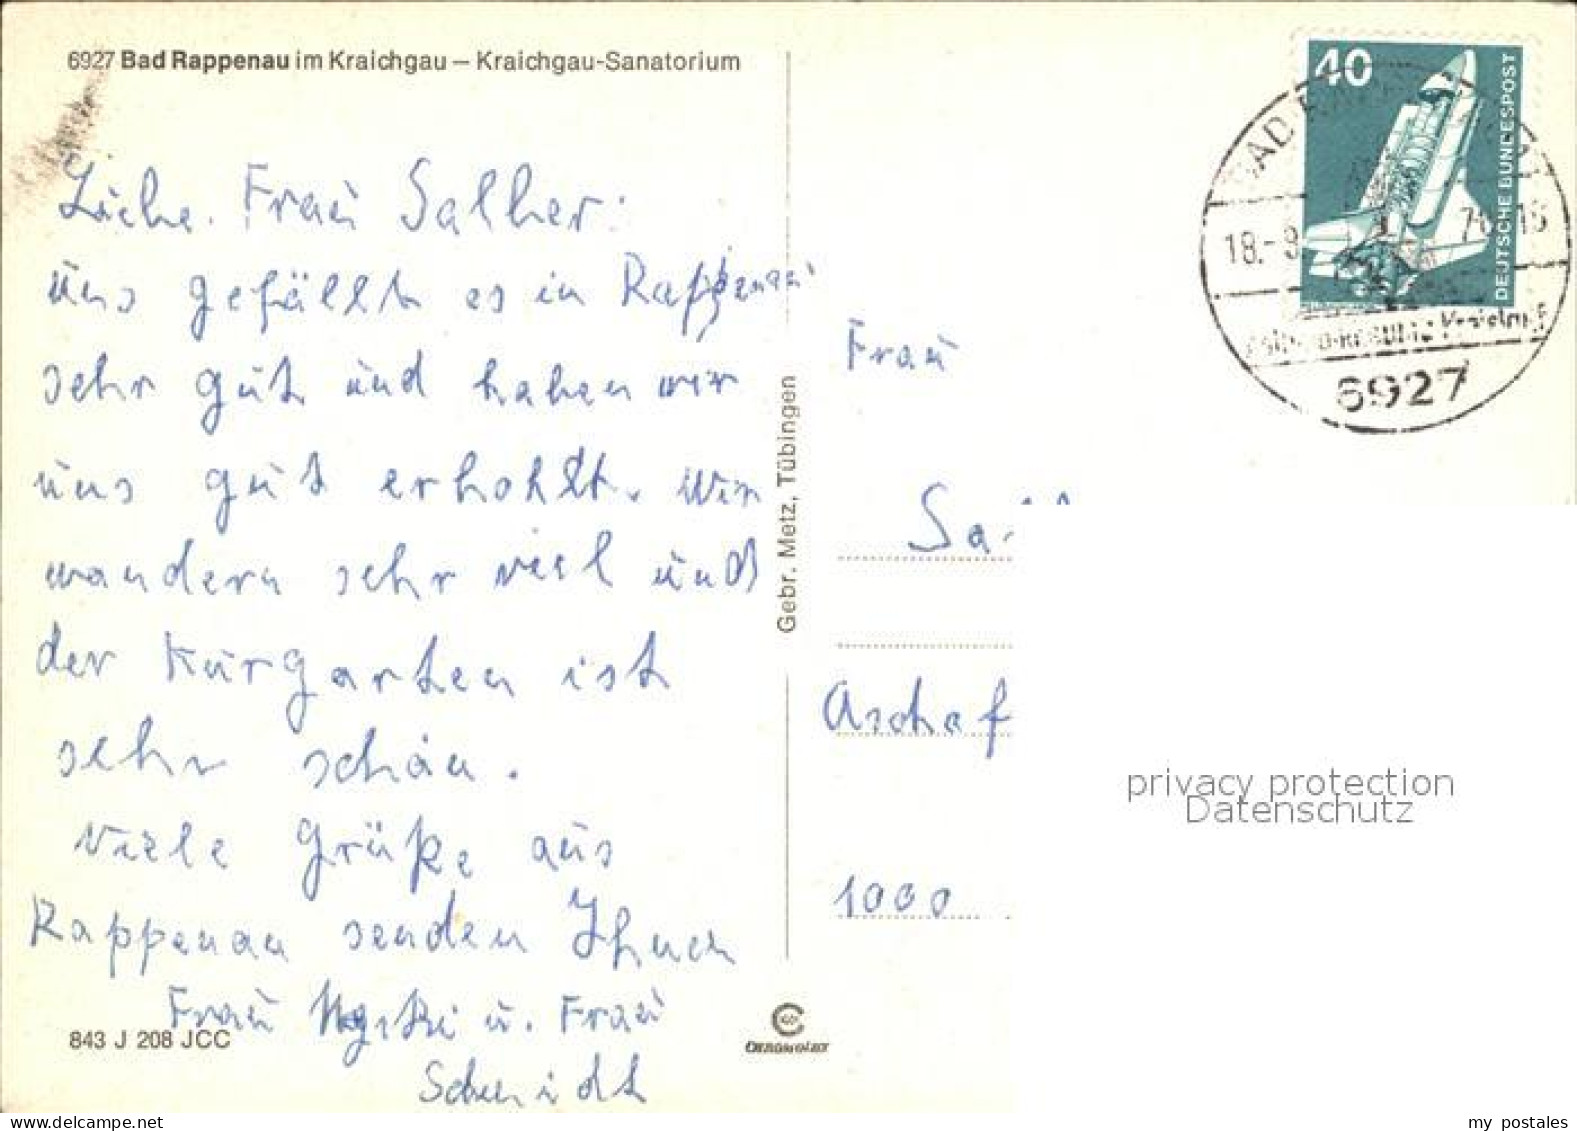 6927 Bad Rappenau im Kraichgau – Kraichgau-Sanatorium
Liebe Frau Salher:
uns gefällt es in Rappenau
sehr gut und haben wir
uns gut erhohlt. Wir
wandern sehr viel und
der Kurgarten ist
sehr schön.
Viele Grüße aus
Rappenau senden Ihnen
Frau u. Frau
Schmidt
843 J 208 JCC
Gebr. Metz, Tübingen
40
DEUTSCHE BUNDESPOST
18.-9
6927
Frau
Aschaf
1000
privacy protection
Datenschutz
my postales